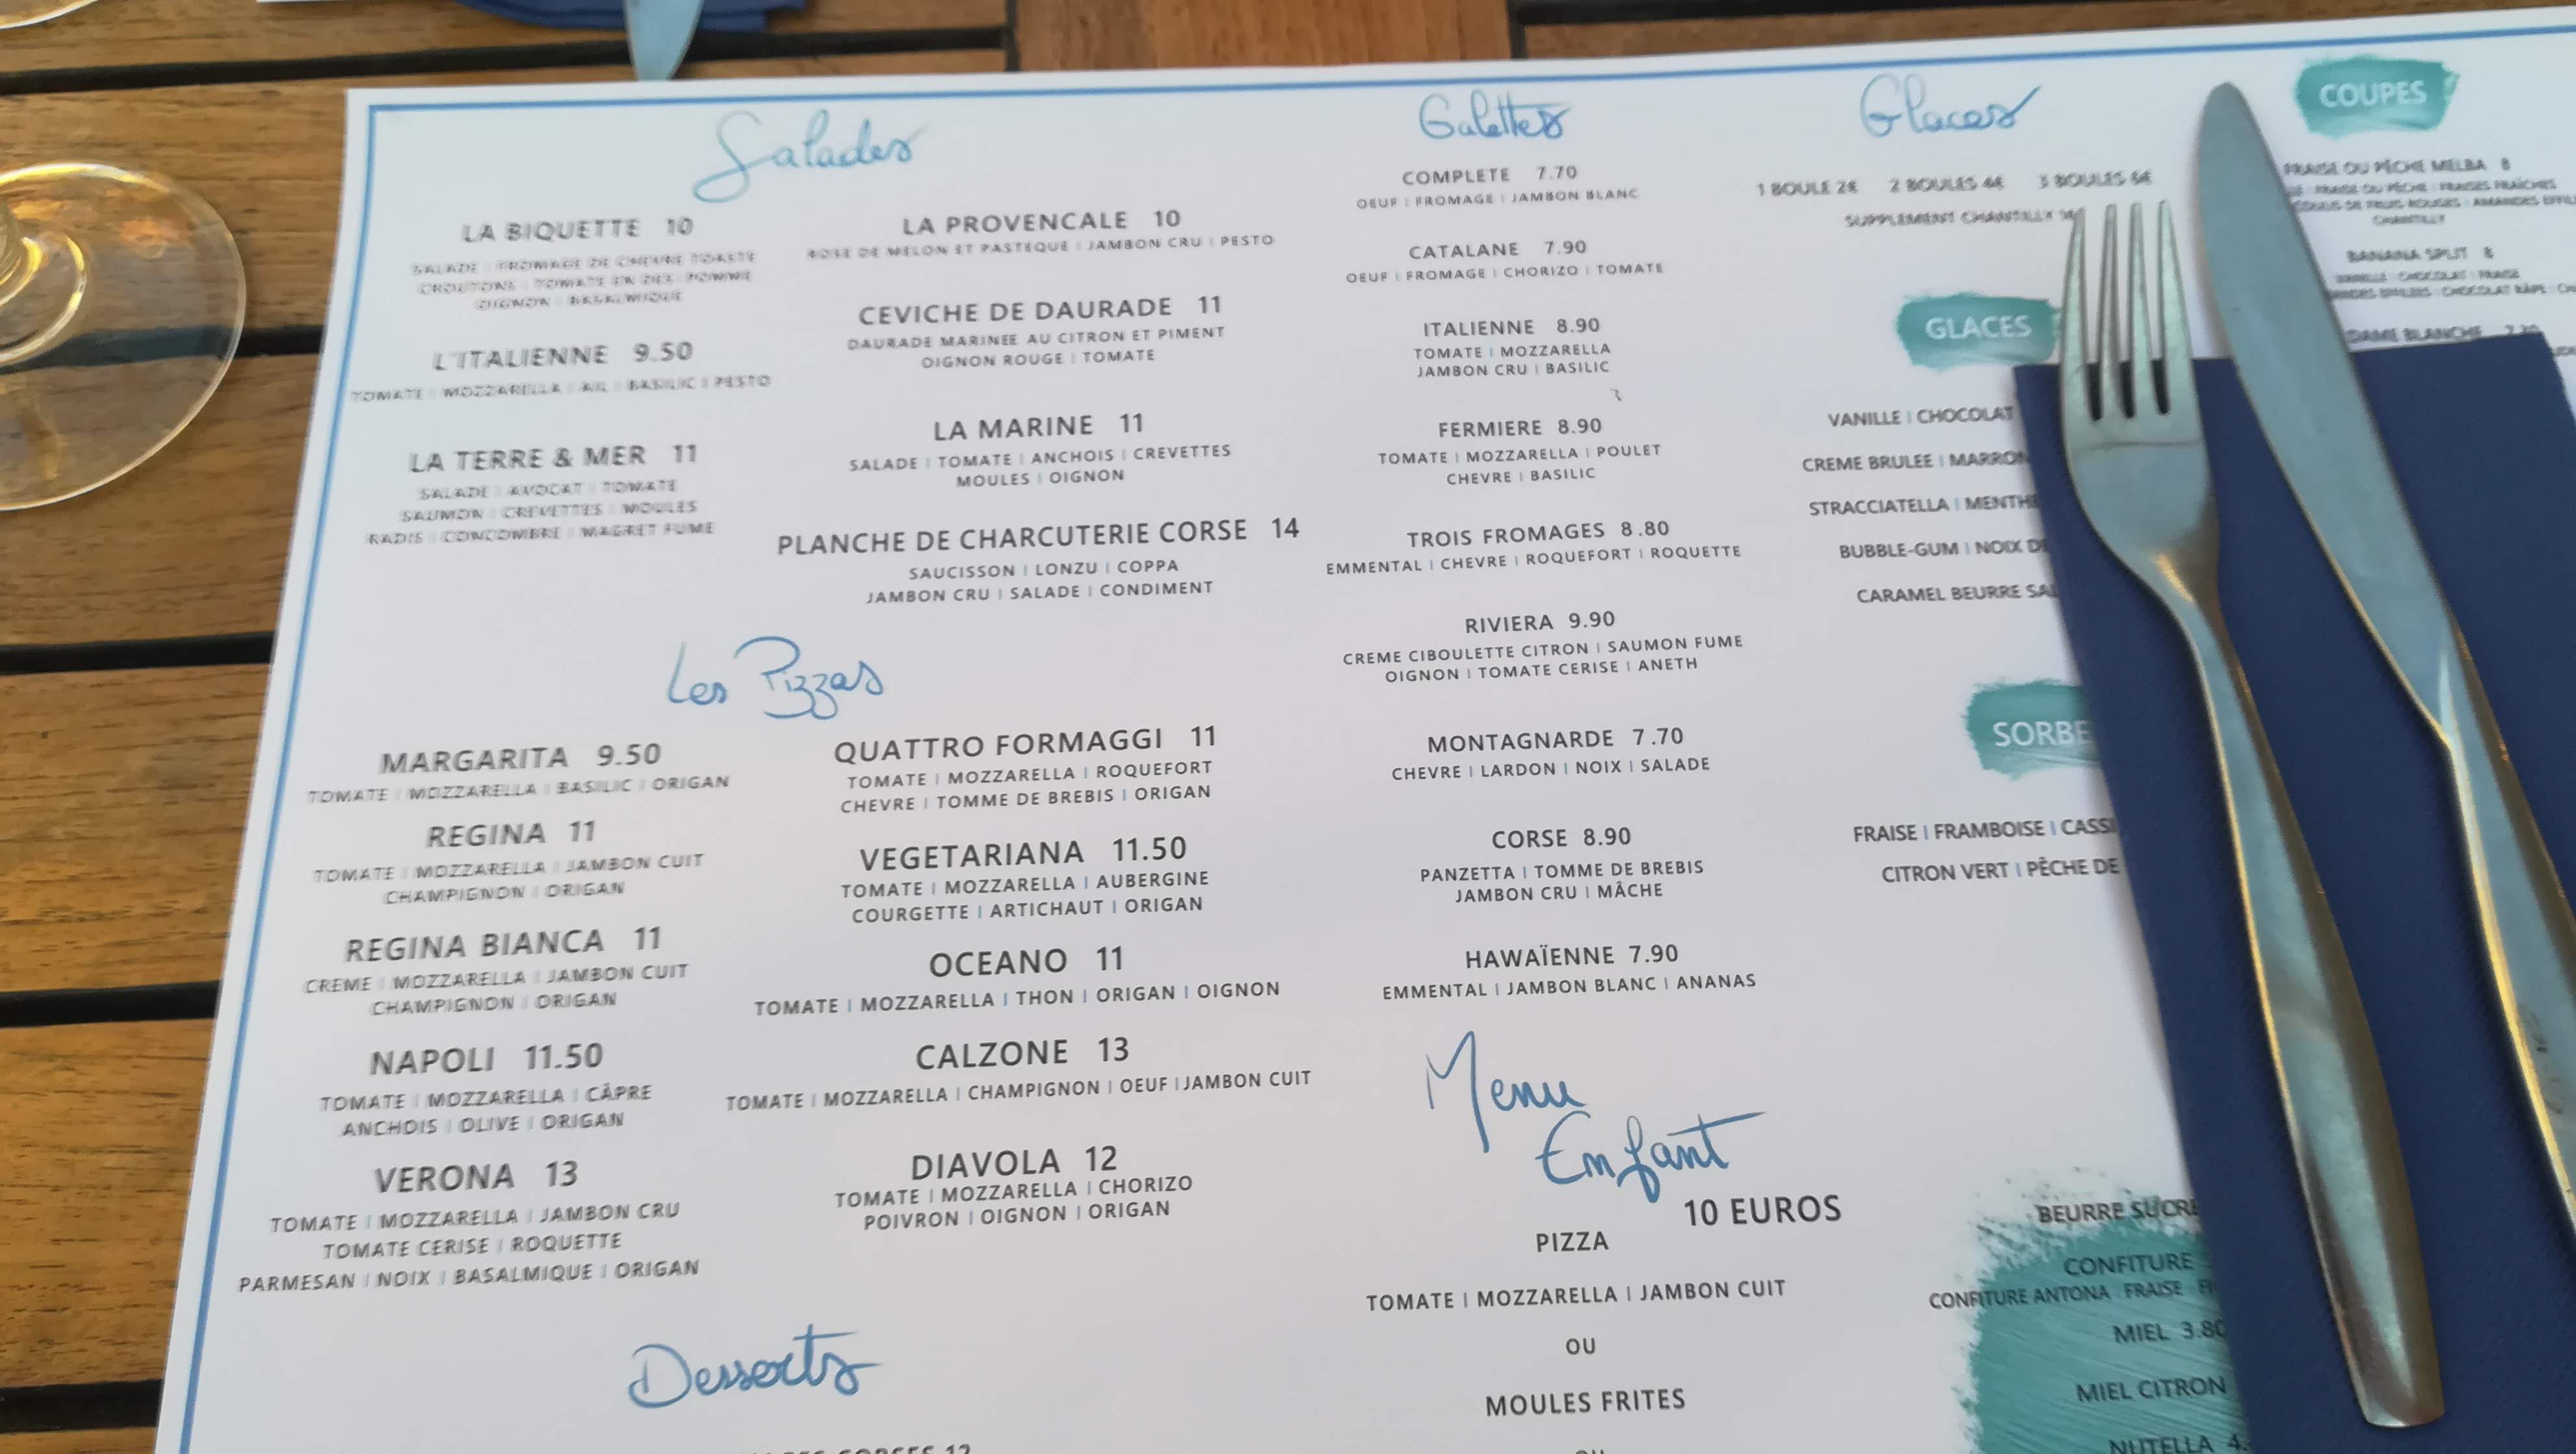 Salades
LA BIQUETTE 10
SALADE | FROMAGE DE CHEVRE TOASTE
CROUTONS | TOMATE EN DES | POMME
OIGNON | BASALMIQUE
L'ITALIENNE 9.50
TOMATE | MOZZARELLA | AIL | BASILIC | PESTO
LA TERRE & MER 11
SALADE | AVOCAT | TOMATE
SAUMON | CREVETTES | MOULES
RADIS | CONCOMBRE | MAGRET FUME
LA PROVENCALE 10
ROSE DE MELON ET PASTEQUE | JAMBON CRU | PESTO
CEVICHE DE DAURADE 11
DAURADE MARINEE AU CITRON ET PIMENT
OIGNON ROUGE | TOMATE
LA MARINE 11
SALADE | TOMATE | ANCHOIS | CREVETTES
MOULES | OIGNON
PLANCHE DE CHARCUTERIE CORSE 14
SAUCISSON | LONZU | COPPA
JAMBON CRU | SALADE | CONDIMENT
Les Pizzas
MARGARITA 9.50
TOMATE | MOZZARELLA | BASILIC | ORIGAN
REGINA 11
TOMATE | MOZZARELLA | JAMBON CUIT
CHAMPIGNON | ORIGAN
REGINA BIANCA 11
CREME | MOZZARELLA | JAMBON CUIT
CHAMPIGNON | ORIGAN
NAPOLI 11.50
TOMATE | MOZZARELLA | CÂPRE
ANCHOIS | OLIVE | ORIGAN
VERONA 13
TOMATE | MOZZARELLA | JAMBON CRU
TOMATE CERISE | ROQUETTE
PARMESAN | NOIX | BASALMIQUE | ORIGAN
QUATTRO FORMAGGI 11
TOMATE | MOZZARELLA | ROQUEFORT
CHEVRE | TOMME DE BREBIS | ORIGAN
VEGETARIANA 11.50
TOMATE | MOZZARELLA | AUBERGINE
COURGETTE | ARTICHAUT | ORIGAN
OCEANO 11
TOMATE | MOZZARELLA | THON | ORIGAN | OIGNON
CALZONE 13
TOMATE | MOZZARELLA | CHAMPIGNON | OEUF | JAMBON CUIT
DIAVOLA 12
TOMATE | MOZZARELLA | CHORIZO
POIVRON | OIGNON | ORIGAN
Desserts
Galettes
COMPLETE 7.70
OEUF | FROMAGE | JAMBON BLANC
CATALANE 7.90
OEUF | FROMAGE | CHORIZO | TOMATE
ITALIENNE 8.90
TOMATE | MOZZARELLA
JAMBON CRU | BASILIC
FERMIERE 8.90
TOMATE | MOZZARELLA | POULET
CHEVRE | BASILIC
TROIS FROMAGES 8.80
EMMENTAL | CHEVRE | ROQUEFORT | ROQUETTE
RIVIERA 9.90
CREME CIBOULETTE CITRON | SAUMON FUME
OIGNON | TOMATE CERISE | ANETH
MONTAGNARDE 7.70
CHEVRE | LARDON | NOIX | SALADE
CORSE 8.90
PANZETTA | TOMME DE BREBIS
JAMBON CRU | MÂCHE
HAWAÏENNE 7.90
EMMENTAL | JAMBON BLANC | ANANAS
Menu
Enfant
10 EUROS
PIZZA
TOMATE | MOZZARELLA | JAMBON CUIT
OU
MOULES FRITES
Glaces
1 BOULE 2€ 2 BOULES 4€ 3 BOULES 6€
SUPPLEMENT CHANTILLY
GLACES
VANILLE | CHOCOLAT
CREME BRULEE | MARRON
STRACCIATELLA | MENTHE
BUBBLE-GUM | NOIX DE
CARAMEL BEURRE
SORBE
FRAISE | FRAMBOISE | CASSI
CITRON VERT | PÊCHE DE
BEURRE SUCRE
CONFITURE
CONFITURE ANTONA FRAISE
MIEL 3.80
MIEL CITRON
NUTELLA 4
COUPES
FRAISE OU PÊCHE MELBA 8
FRAISE OU PÊCHE | FRAISES FRAÎCHES
COULIS DE FRUIS ROUGES | AMANDES
CHANTILLY
BANANA SPLIT 8
VANILLE | CHOCOLAT | FRAISE
CHOCOLAT RÂPE
DAME BLANCHE